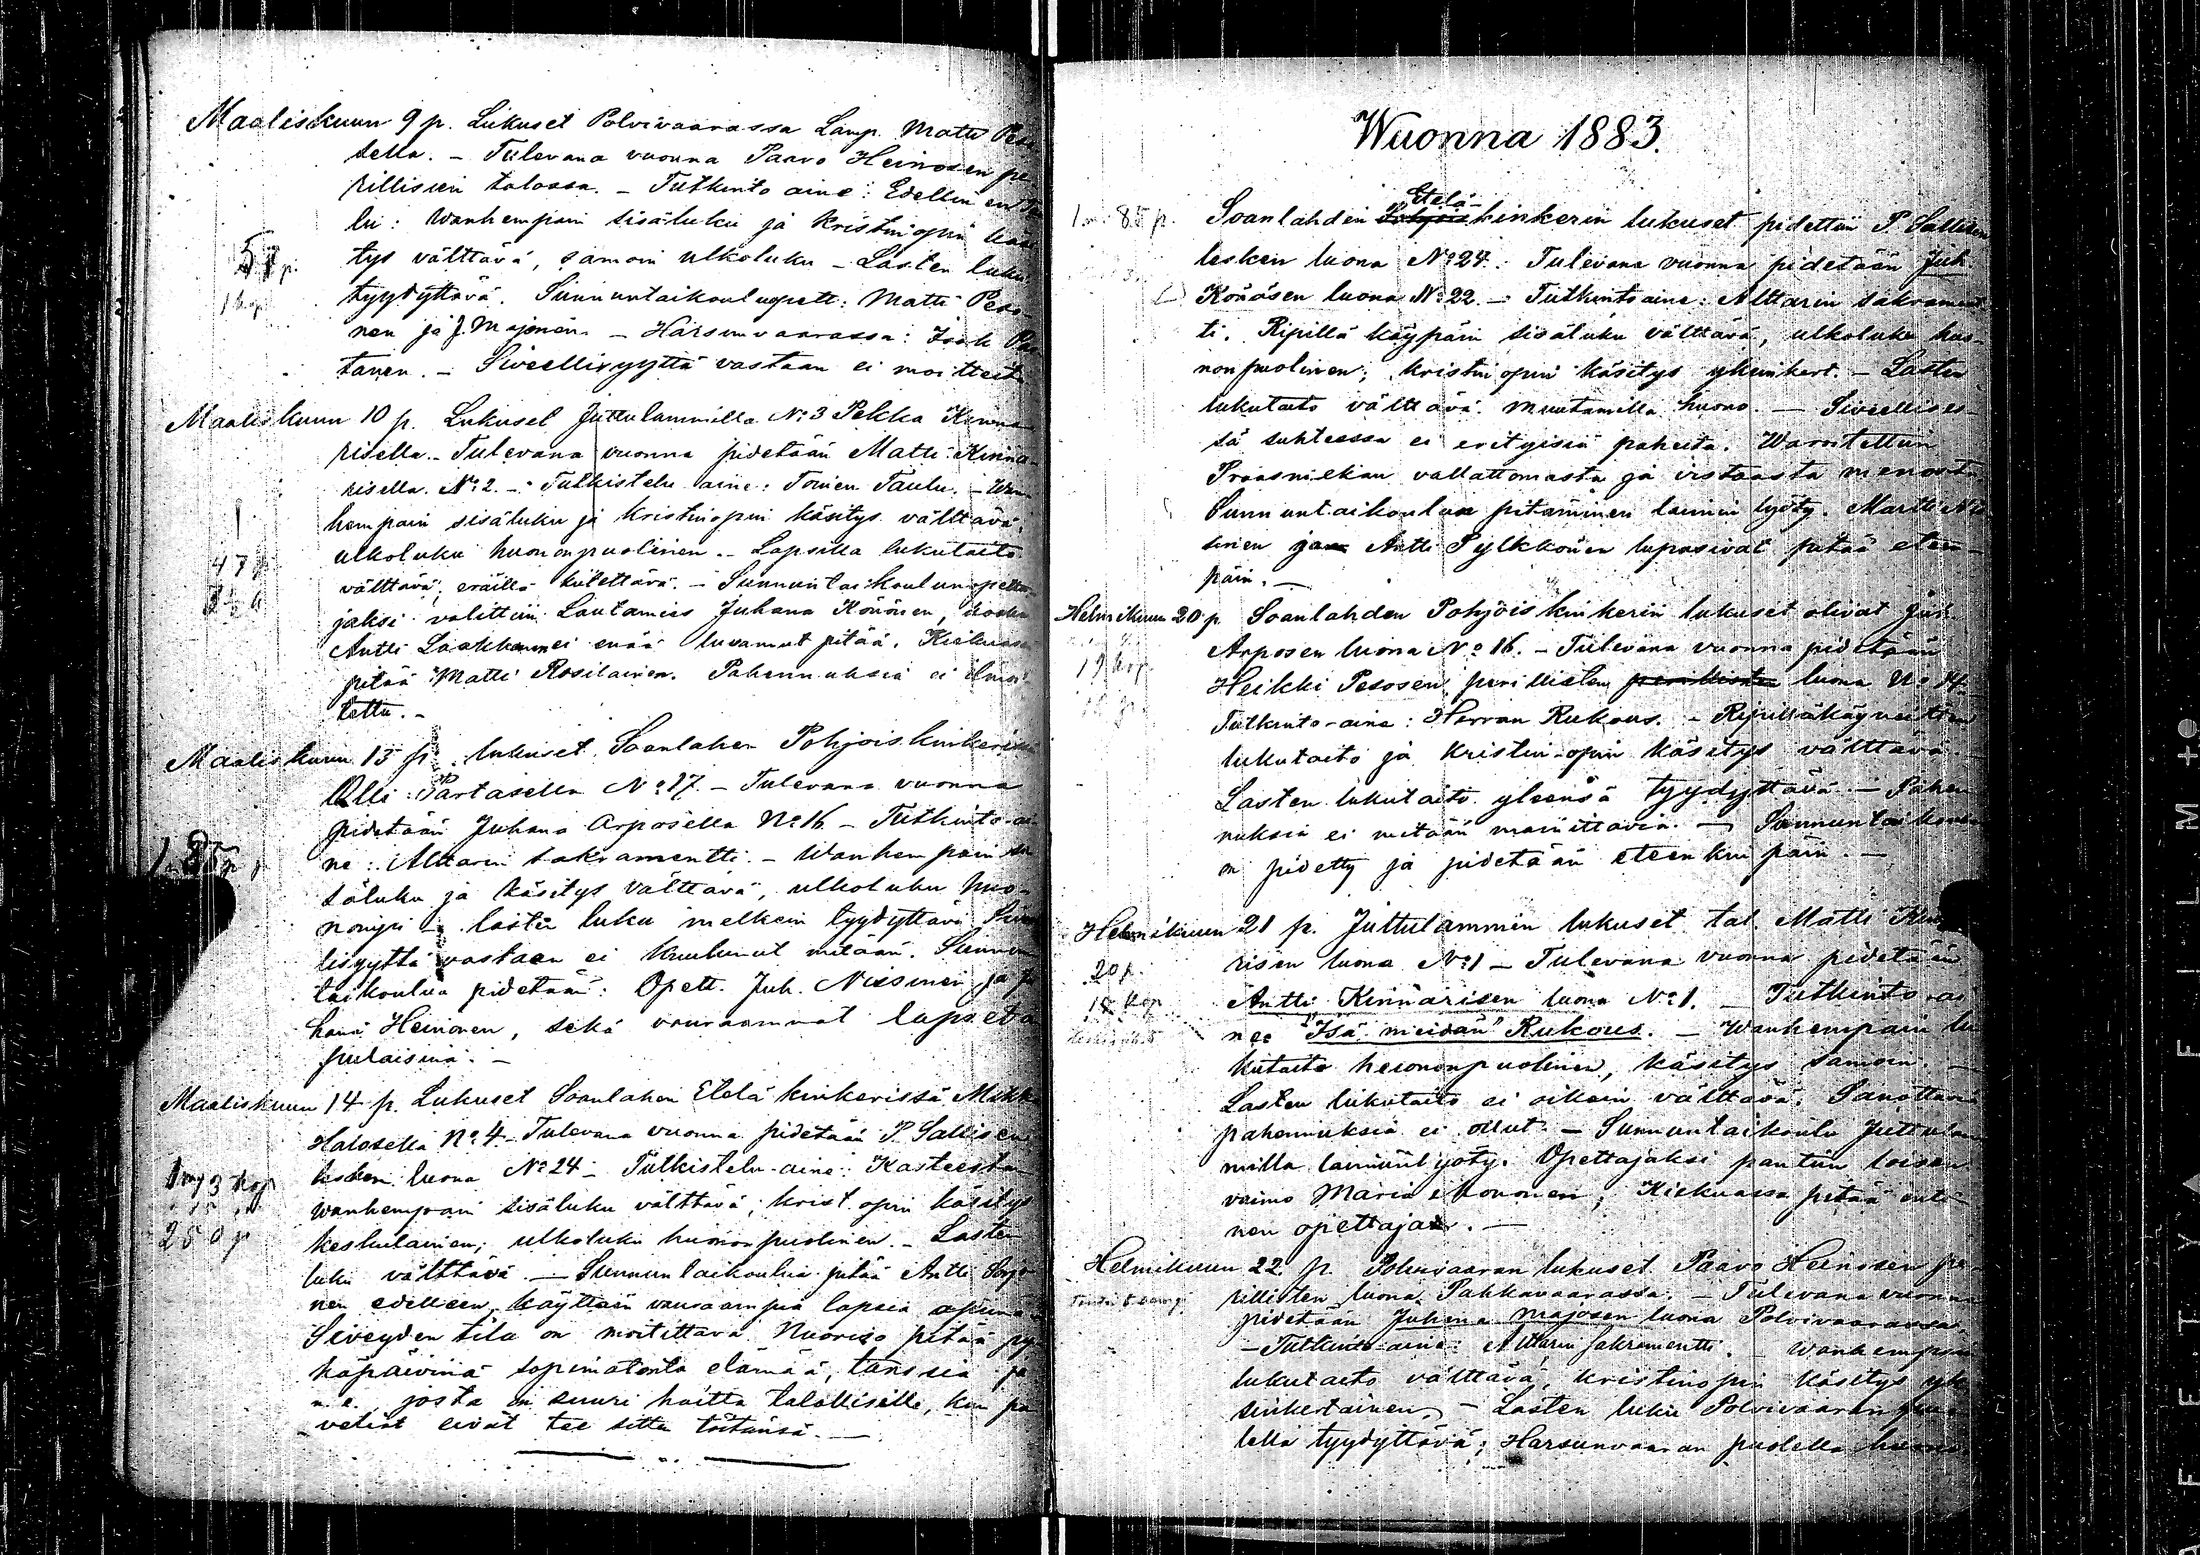 Maaliskuun 9 p. Lukuset Polvivaarassa Lamp. Matti Peso
sella. - Tulevana vuonna Paavo Heinosen pe-
rillisien talossa. - Tutkinto aine: Edellinen
lu: Wanhempain sisäluku ja Kristinopin käsi
57 p.
tys välttävä, samoin ulkoluku - Lasten luku
tyydyttävä. Sunnuntaikoul.opett: Matti Peso-
nen ja J. Majonen - Harsunvaarassa: Isak
tanen. - Siveellisyyttä vastaan ei moitteita
Maaliskuun 10 p. Lukuset Juttulammilla No 3 Pekka Kinna
risella. - Tulevana vuonna pidetään Matti Kinna-
risella. No 2. - Tutkistelu aine: Tomen Taulu. - Wan
hempain sisäluku ja Kristinopin käsitys välttävä
ulkoluku huononpuolinen. - Lapsilla lukutaito
47 p
välttävä; eräillä kiitettävä. - Sunnuntai koulunopetta
jaksi valittiin Lautamies Juhana Könönen, koska
Antti Laakkonen ei enää luvannut pitää. Kiekuassa
pitää Matti Rosilainen. Pahennuksia ei ilmoi
tettu. -
Maaliskuun 13 p. lukuset Soanlahen Pohjoiskinkerissä
Olli Partasella No 17. - Tulevana vuonna
pidetään Juhana Arposella No 16 - Tutkinto-ai
ne: Alttarin sakramentti. - Wanhempain si
1 m 85 p
säluku ja käsitys välttävä, ulkoluku huo-
nompi - lasten luku melkein tyydyttävä
lisyyttä vastaan ei kuulunut mitään. Sunnun
taikoulua pidetään: Opett. Juh. Nissinen ja Ju
hana Heinonen, sekä varaammat lapset a
pulaisina. -
Maaliskuun 14 p. Lukuset Soanlahen Etelä kinkerissä Mikko
Halosella No 4. - Tulevana vuonna pidetään P. Sallisen
lesken luona No 24 - Tutkistelu-aine: Kasteesta
1 m 73 kop
wanhempain sisäluku välttävä; krist. opin käsitys
250 p
keskulainen; ulkoluku huononpuolinen. - Lasten
luku välttävä. - Sunnuntaikoulua pitää Antti
nen edelleen, käyttäen varaampia lapsia apuna
Siveyden tila on moitittava Nuoriso pitää py
häpäivinä sopimatonta elämää, tanssia ja
m.e. josta on suuri haitta talollisille, kun pa
veliat eivät tee sitten töitänsä. -
Wuonna 1883.
Etelä-
1 m. 85 p.
Soanlahden Pohjois kinkerin lukuset pidettiin P. Sallisen
lesken luona No 24. Tulevana vuonna pidetään Juh.
Könösen luona No 22. - Tutkinto aine: Alttarin sakrament
ti. Ripillä käypäin sisäluku välttävä, ulkoluku huo-
nonpuolinen; kristinopin käsitys yksinkert. - Lasten
lukutaito välttävä muutamilla huono. - Siveellises-
sä suhteessa ei erityisiä paheita. Waroitettiin
Praasniekan vallattomasta ja irstaasta menosta
Sunnuntaikoulun pitäminen laimin lyöty. Martti
sinen ja Antti Pylkkönen lupasivat pitää eteen-
päin. -
Helmikuun 20 p Soanlahden Pohjois kinkerin lukuset olivat Juh.
Arposen luona No 16. - Tulevana vuonna pidetään
19 kop.
Heikki Pesosen perillisten perillisten luona No 14
Tutkinto-aine: Herran Rukous. - Ripilläkäyneitten
lukutaito ja Kristin-opin käsitys välttävä.
Lasten lukutaito yleensä tyydyttävä - Pahen
nuksia ei mitään mainittavia. - Sunnuntaikoulu
on pidetty ja pidetään eteenkin päin. -
Helmikuun 21 p. Juttulammin lukuset tal. Matti Kinna
20 p.
risen luona No 1 - Tulevana vuonna pidetään
18 kop
Antti Kinnarisen luona No 1. - Tutkinto-ai
ne: "Isä meidän" Rukous. - Wanhempain lu
kutaito huononpuolinen, käsitys samoin. -
Lasten lukutaito ei oikein välttävä. Sanottavia
pahennuksia ei ollut - Sunnuntaikoulu Juttulam
milla laiminlyöty. Opettajaksi pantiin loisen
vaimo Maria Kononen; Kiekuassa pitää enti-
nen opettaja. -
Helmikuun 22 p. Polvivaaran lukuset Paavo Heinosen pe-
rillisten luona Pahkavaarassa. - Tulevana vuonna
pidetään Juhana Majosen luona Polvivaarassa.
- Tutkinto-aine: Alttarin sakramentti. - Wanhempain
lukutaito välttävä, kristinopin käsitys yk
sinkertainen. - Lasten luku Polvivaaran puo
lella tyydyttävä; Harsunvaaran puolella huono